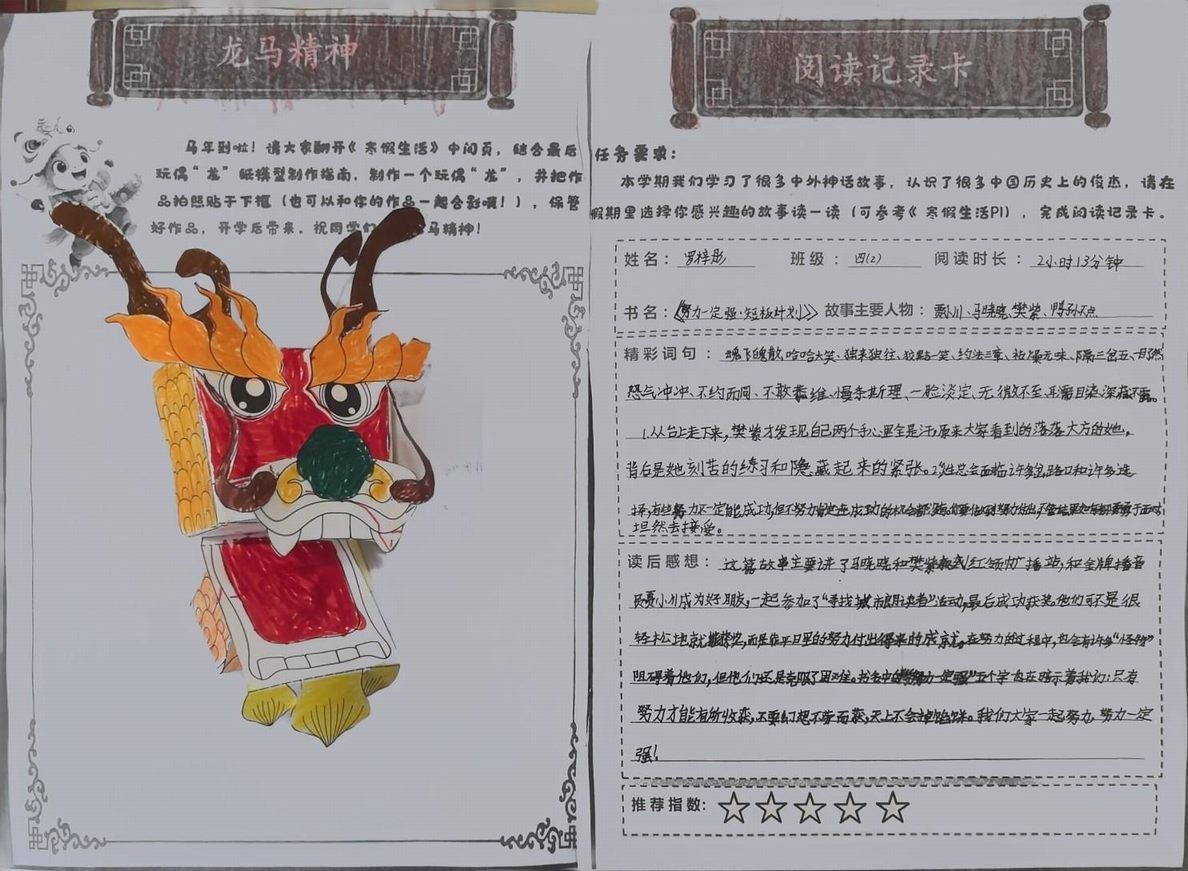 龙马精神
马年到啦！请大家翻开《寒假生活》中间页，结合最后
玩偶“龙”纸模型制作指南，制作一个玩偶“龙”，并把作
品拍照贴于下框（也可以和你的作品一起合影哦！），保管
好作品，开学后带来。祝同学们 马精神！
阅读记录卡
任务要求：
本学期我们学习了很多中外神话故事，认识了很多中国历史上的俊杰，请在
假期里选择你感兴趣的故事读一读（可参考《寒假生活P1），完成阅读记录卡。
姓名： 罗梓彤 班级： 四(2) 阅读时长： 2小时13分钟
书名：《努力一定强·短板计划》 故事主要人物： 聂小川、马晓晓、樊紫、
精彩词句： 魂飞魄散、哈哈大笑、独来独往、狡黠一笑、约法三章、枯燥无味、隔三岔五、一目了然
怒气冲冲、不约而同、不敢恭维、慢条斯理、一脸淡定、无微不至、耳濡目染、深藏不露。
1.从台上走下来，樊紫才发现自己两个手心里全是汗，原来大家看到的落落大方的她，
背后是她刻苦的练习和隐藏起来的紧张。2. 总会面临许多岔路口和许多选
择，有些努力不一定能成功，但不努力
坦然去接受。
读后感想： 这篇故事主要讲了马晓晓和樊紫 红领巾广播站，和金牌播音
员聂小川成为好朋友，一起参加了“寻找城市朗读者”活动，最后成功获奖。他们可不是很
轻松地就能获奖，而是靠平日里的努力付出得来的成就。在努力的过程中，也会有许多“怪物”
阻碍着他们，但他们还是克服了困难。书名中的“努力一定强”五个字也在暗示着我们：只有
努力才能有所收获，不要幻想不劳而获，天上不会掉馅饼。我们大家一起努力，努力一定
强！
推荐指数：